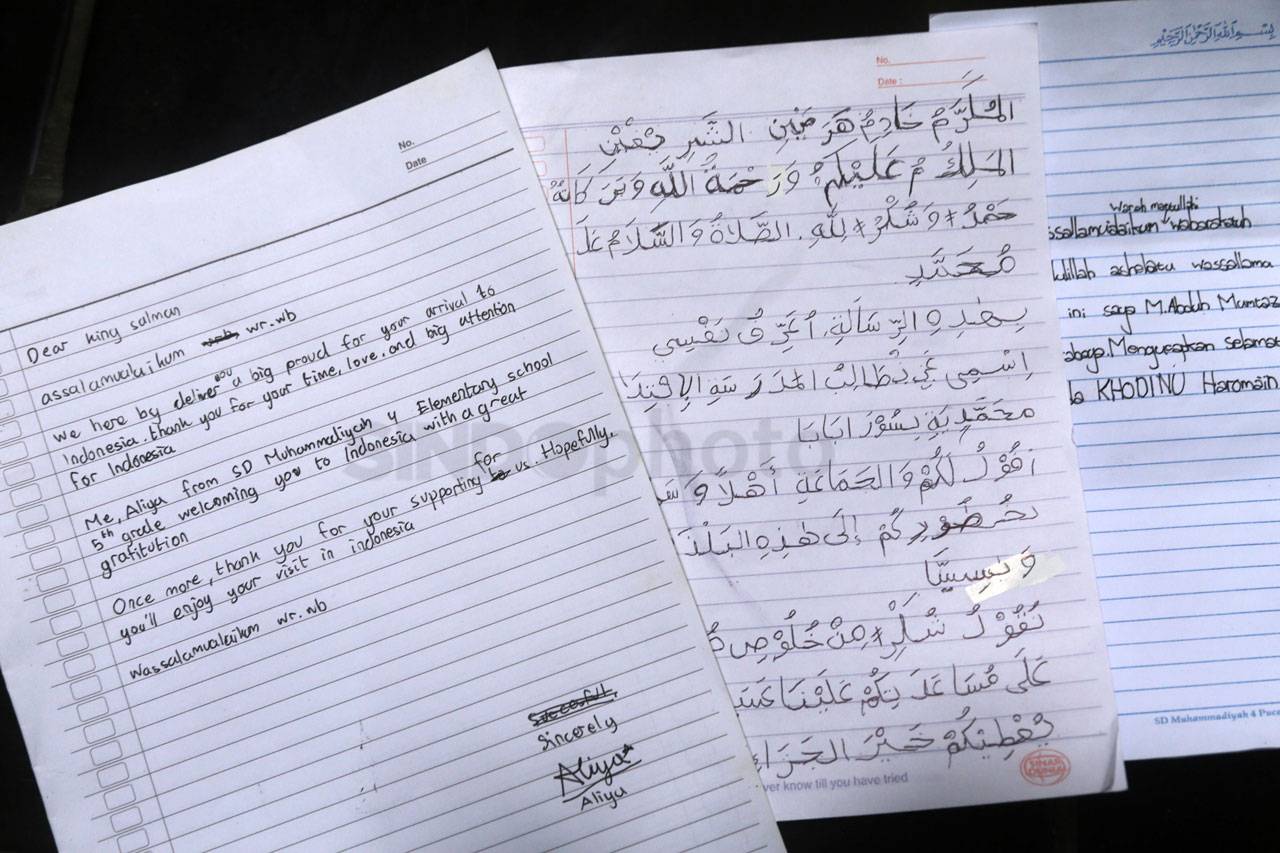 No.
Date
Dear king salman
assalamualaikum wr.wb
we here by deliver you a big proud for your arrival to
Indonesia. thank you for your time, love, and big attention
for Indonesia
Me, Aliya from SD Muhammadiyah 4 Elementary school
5th grade welcoming you to Indonesia with a great
gratitution
Once more, thank you for your supporting for us. Hopefully,
you'll enjoy your visit in indonesia
Wassalamualaikum wr.wb
Succesfull,
Sincerely
Aliya
Aliya
No.
Date :
المُكَرَّمُ خَادِمُ هَرَمَيْنِ الشَّرِ
المَلِكُ عَلَيْكُمْ وَرَحْمَةُ اللَّهِ
حَمْدُ وَشُكْرُ لِلَّهِ. الصَّلَاةُ وَالسَّلَامُ عَلَ
مُحَمَّدٍ
بِهٰذِهِ الرِّسَالَةِ أُعَرِّفُ نَفْسِي
اِسْمِي طَالِبُ المَدْرَسَةِ الإِبْتِدَا
مُحَمَّدِيَةِ سُوْرَابَايَا
أَقُوْلُ لَكُمْ وَالجَمَاعَةِ أَهْلًا وَسَ
بِحُضُوْرِكُمْ إِلَى هٰذِهِ البَلْدَ
نَقُوْلُ شُكْرً مِنْ خُلُوْصِ
عَلَى مُسَاعَدَتِكُمْ عَلَيْنَا
يُعْطِيْكُمْ خَيْرَ الجَزَاءِ
ver know till you have tried
SINAR DUNIA
بسم الله الرحمن الرحيم
ssallamualaikum wabarakatuh
ini saya M.Abduh Mumtaz
abaya. Mengucapkan selamat
da KHODIMU Haromain
SD Muhammadiyah 4 Puca
SINDOphoto